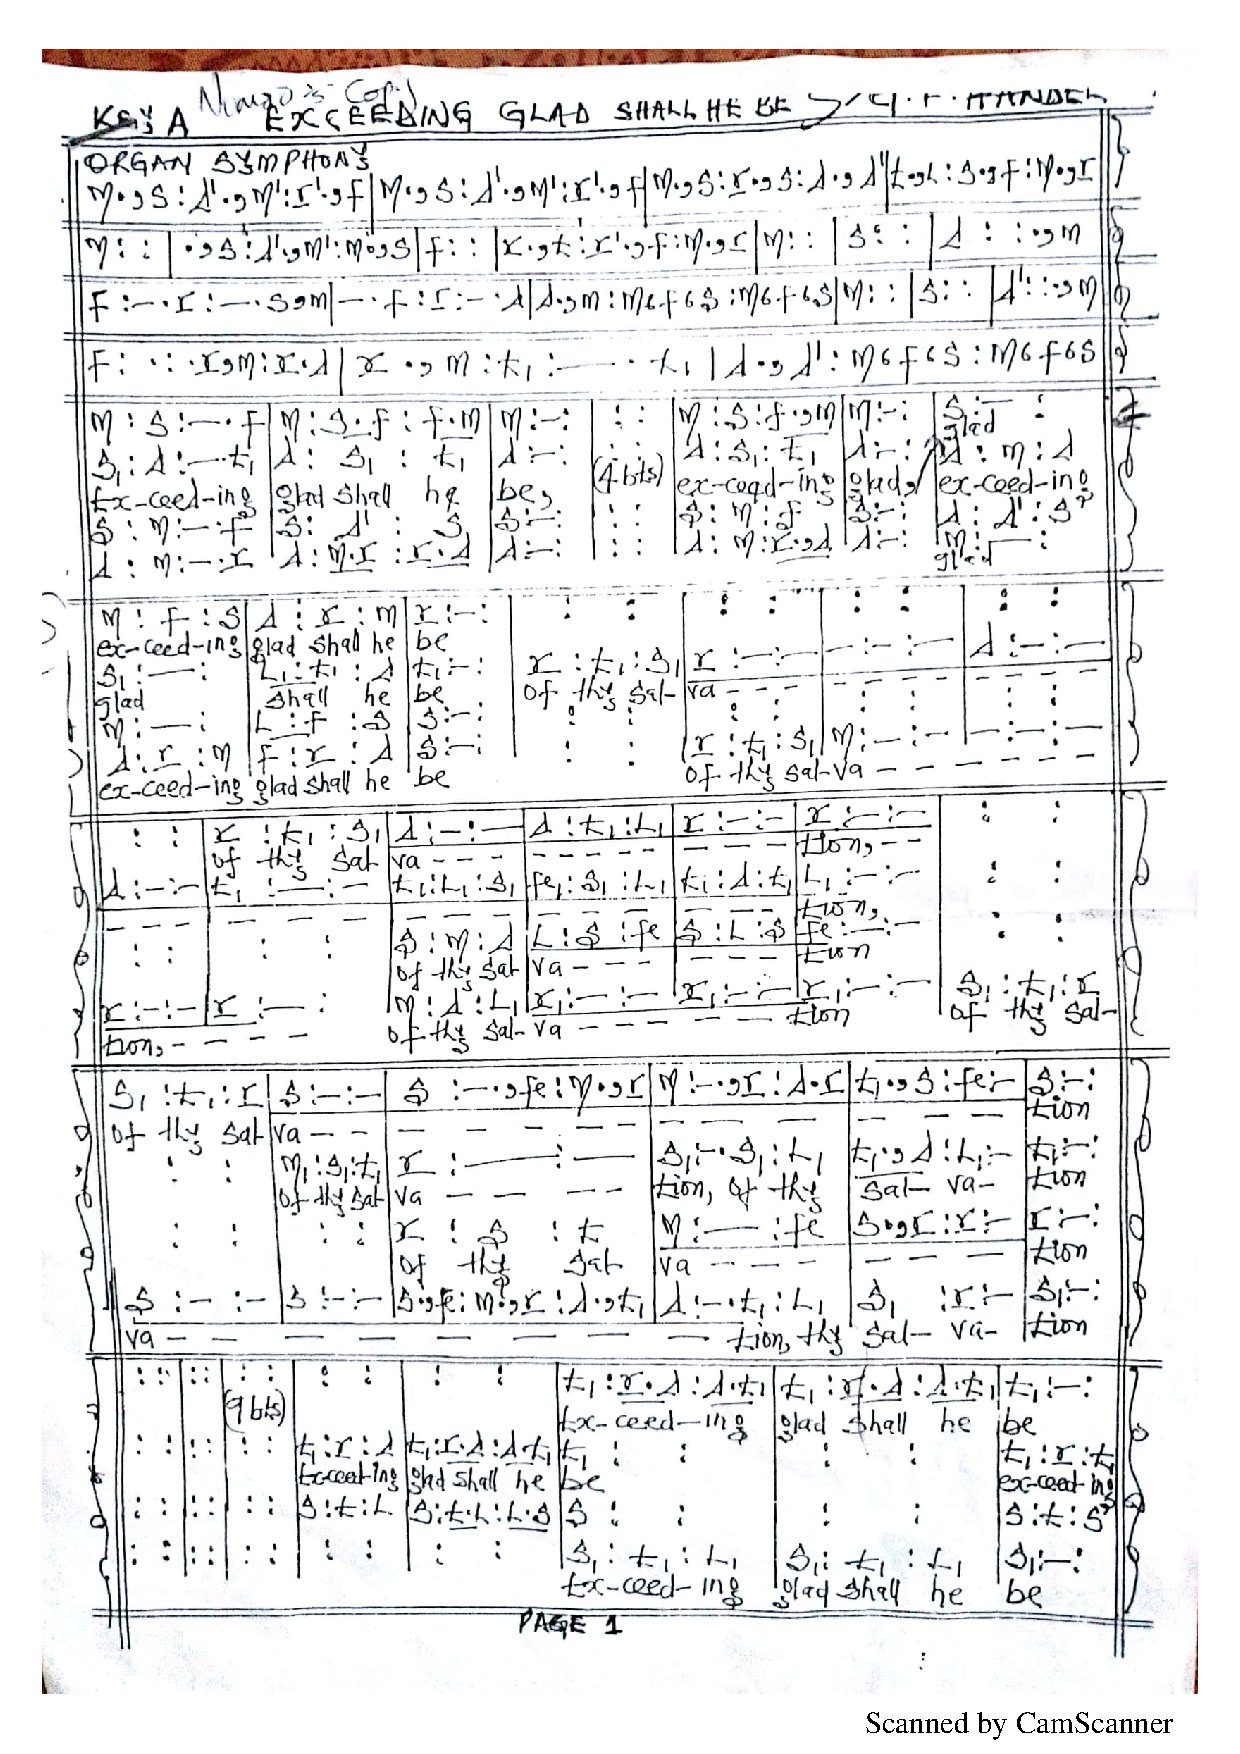 KEY A EXCEEDING GLAD SHALL HE BE by G. F. HANDEL
ORGAN SYMPHONY
M.,S:d'.,M':r'.,f|M.,S:d'.,M':r'.,f|M.,S:r.,S:d.,d'|t.,L:S.,f:M.,r
M: : |.,S:d'.,M':M.,S|f: : |r.,t:r'.,f:M.,r|M: : |S: : |d: :.,M
f:-.r:-.S,M|-.f:r:-.d|d.,M:M6f6S:M6f6S|M: : |S: : |d': :.,M
f: .:.r,M:r.d|r.,M:t₁:-.t₁|d.,d':M6f6S:M6f6S
M:S:-.f|M:S.f:f.M|M:-: | : : |M:S:f.,M|M:-: |S:-:
glad
S₁:d:-.t₁|d:S₁:t₁|d:-: |(4 bts)|d:S₁:t₁|d:-: |d:M:d
Ex-ceed-ing glad shall he be, ex-ceed-ing glad, ex-ceed-ing
S:M:-.f|S:d':S|S:-: | : : |S:M:f|S:-: |d:d':S
d:M:-.r|d:M.r:r.d|d:-: | : : |d:M:r.,d|d:-: |M:-:
glad
M:f:S|d:r:M|r:-: | : : | : : | : : | : :
ex-ceed-ing glad shall he be
S₁:-: |L₁:t₁:d|t₁:-: |r:t₁:S₁|r:-:-|-:-:-|d:-:-
glad shall he be of thy Sal- va - - -
M:-: |L:f:S|S:-: | : : | : : | : : | : :
d:r:M|f:r:d|S:-: | : : |r:t₁:S₁|M:-:-|-:-:-
ex-ceed-ing glad shall he be of thy Sal-va - - - - - -
 : : |r:t₁:S₁|d:-:-|d:t₁:L₁|r:-:-|r:-:-| : :
of thy Sal va - - - - - - - - - tion, - -
d:-:-|t₁:-:-|t₁:L₁:S₁|fe₁:S₁:L₁|t₁:d:t₁|L₁:-:-| : :
- - - - - - - - - - - - tion,
 : : | : : |S:M:d|L:S:fe|S:L:S|fe:-:-| : :
of thy Sal va - - - - - tion
r:-:-|r:-: |M:d:L₁|r₁:-:-|r₁:-:-|r₁:-:-|S₁:t₁:r
tion, - - - - of thy Sal-va - - - - - tion of thy Sal-
S₁:t₁:r|S:-:-|S:-.,fe:M.,r|M:-.,r:d.r|t₁.,S:fe:-|S:-:
of thy Sal va - - - - - - - - - - - tion
 : : |M₁:S₁:t₁|r:-:-|S₁:-.S₁:L₁|t₁.,d:L₁:-|t₁:-:
of thy Sal va - - - - tion, of thy Sal- va- tion
 : : | : : |r:S:t|M:-:fe|S.,r:r:-|r:-:
of thy Sal va - - - - - - tion
S:-:-|S:-:-|S.,fe:M.,r:d.,t₁|d:-.t₁:L₁|S₁:r:-|S₁:-:
va - - - - - - - - - tion, thy Sal- va- tion
 : : | : : | : : | : : | : : |t₁:r.d:d.t₁|t₁:r.d:d.t₁|t₁:-:
(9 bts) Ex-ceed-ing glad shall he be
 : : | : : | : : |t₁:r:d|t₁:r.d:d.t₁|t₁ : : | : : |t₁:r:t₁
Ex-ceed-ing glad shall he be ex-ceed-ing
 : : | : : | : : |S:t:L|S:t.L:L.S|S : : | : : |S:t:S
 : : | : : | : : | : : | : : |S₁:t₁:L₁|S₁:t₁:L₁|S₁:-:
Ex-ceed-ing glad shall he be
PAGE 1
Scanned by CamScanner